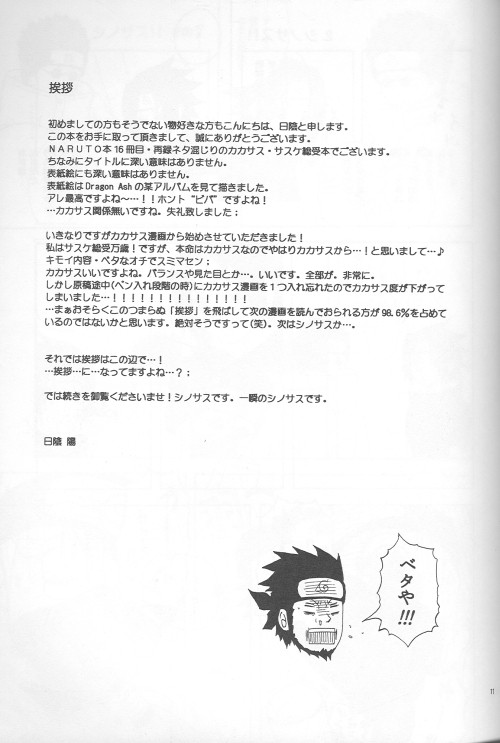 挨拶
初めましての方もそうでない物好きな方もこんにちは、日陰と申します。
この本をお手に取って頂きまして、誠にありがとうございます。
NARUTO本16冊目・再録ネタ混じりのカカサス・サスケ総受本でございます。
ちなみにタイトルに深い意味はありません。
表紙絵にも深い意味はありません。
表紙絵はDragon Ashの某アルバムを見て描きました。
アレ最高ですよね〜…！！ホント“ビバ”ですよね！
…カカサス関係無いですね。失礼致しました；
いきなりですがカカサス漫画から始めさせていただきました！
私はサスケ総受万歳！ですが、本命はカカサスなのでやはりカカサスから…！と思いまして…♪
キモイ内容・ベタなオチでスミマセン；
カカサスいいですよね。バランスや見た目とか…。いいです。全部が。非常に。
しかし原稿途中(ペン入れ段階の時)にカカサス漫画を１つ入れ忘れたのでカカサス度が下がって
しまいました…！！！！！！！！！！！！！！！
…まぁおそらくこのつまらぬ「挨拶」を飛ばして次の漫画を読んでおられる方が98.6％を占めて
いるのではないかと思います。絶対そうですって(笑)。次はシノサスか…。
それでは挨拶はこの辺で…！
…挨拶…に…なってますよね…？；
では続きを御覧くださいませ！シノサスです。一瞬のシノサスです。
日陰 陽
ベタや!!!
11